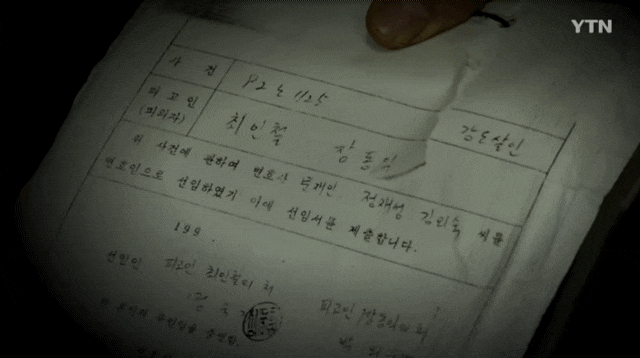 YTN
사 건 92노1125 강도살인
피고인 최인철 장동익
(피의자)
위 사건에 관하여 변호사 문재인, 정재성 김외숙 씨를
변호인으로 선임하였기 이에 선임서를 제출합니다.
199 .
선임인 피고인 최인철의 처
피고인 장동익의 처